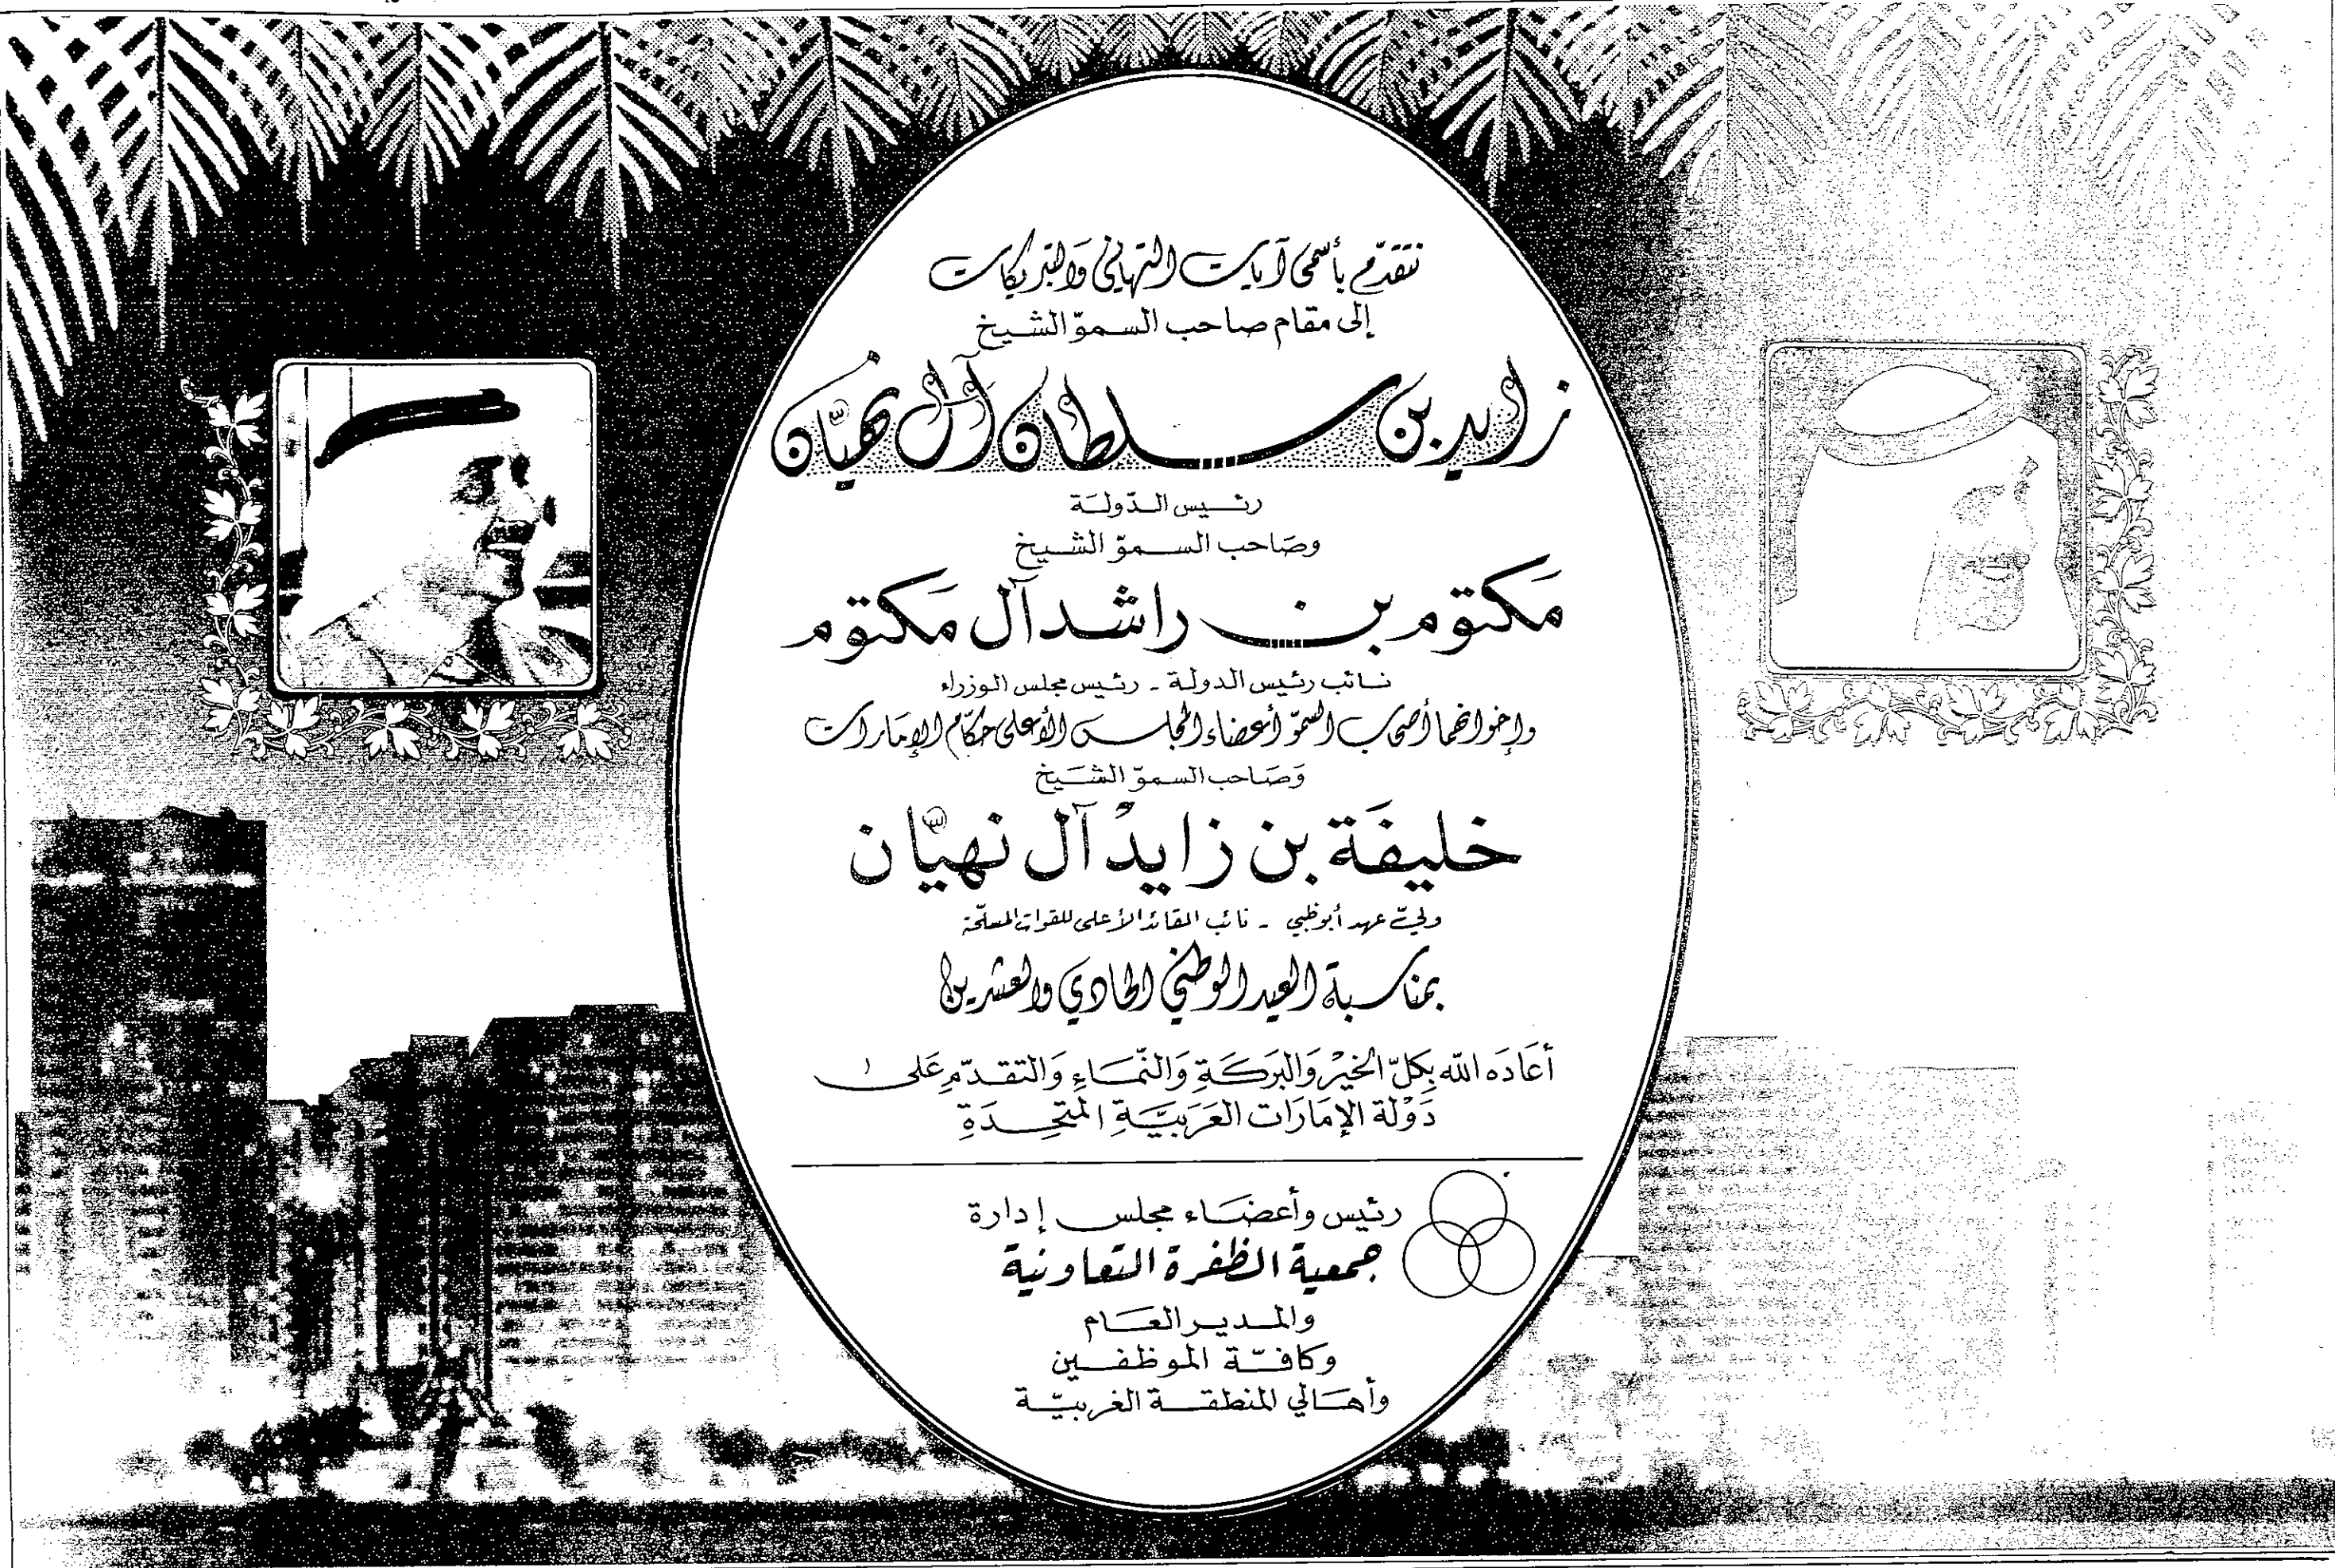 نتقدّم بأسمى آيات التهاني والتبريكات
إلى مقام صاحب السموّ الشيخ
زايد بن سلطان آل نهيّان
رئيس الدّولة
وصَاحب السموّ الشيخ
مَكتوم بن راشد آل مَكتوم
نائب رئيس الدولة - رئيس مجلس الوزراء
وإخوانهما أصحاب السموّ أعضاء المجلس الأعلى حكّام الإمَارات
وَصَاحب السموّ الشَيخ
خليفَة بن زايدْ آل نهيَّان
وليّ عهد أبوظبي - نائب القائد الأعلى للقوات المسلّحة
بمناسبة العيد الوطني الحادي والعشرين
أعَادَه الله بِكلّ الخيْر وَالبَركَةِ وَالنّمَاءِ وَالتقدّمِ عَلى
دَوْلة الإمَارَات العَرَبيَّةِ المتّحِدَةِ
رئيس وأعضَاء مجلس إدارة
جمعية الظفرة التعاونية
والمدير العَام
وكافّة الموظفين
وأهَالي المنطقة الغربيّة